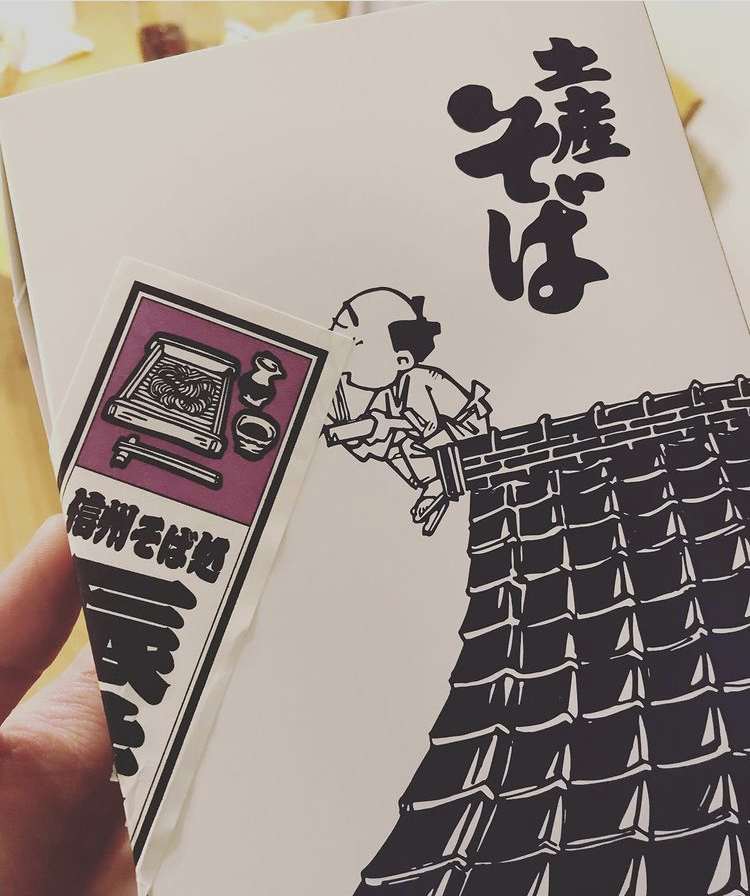 土産
そば
信州そば処